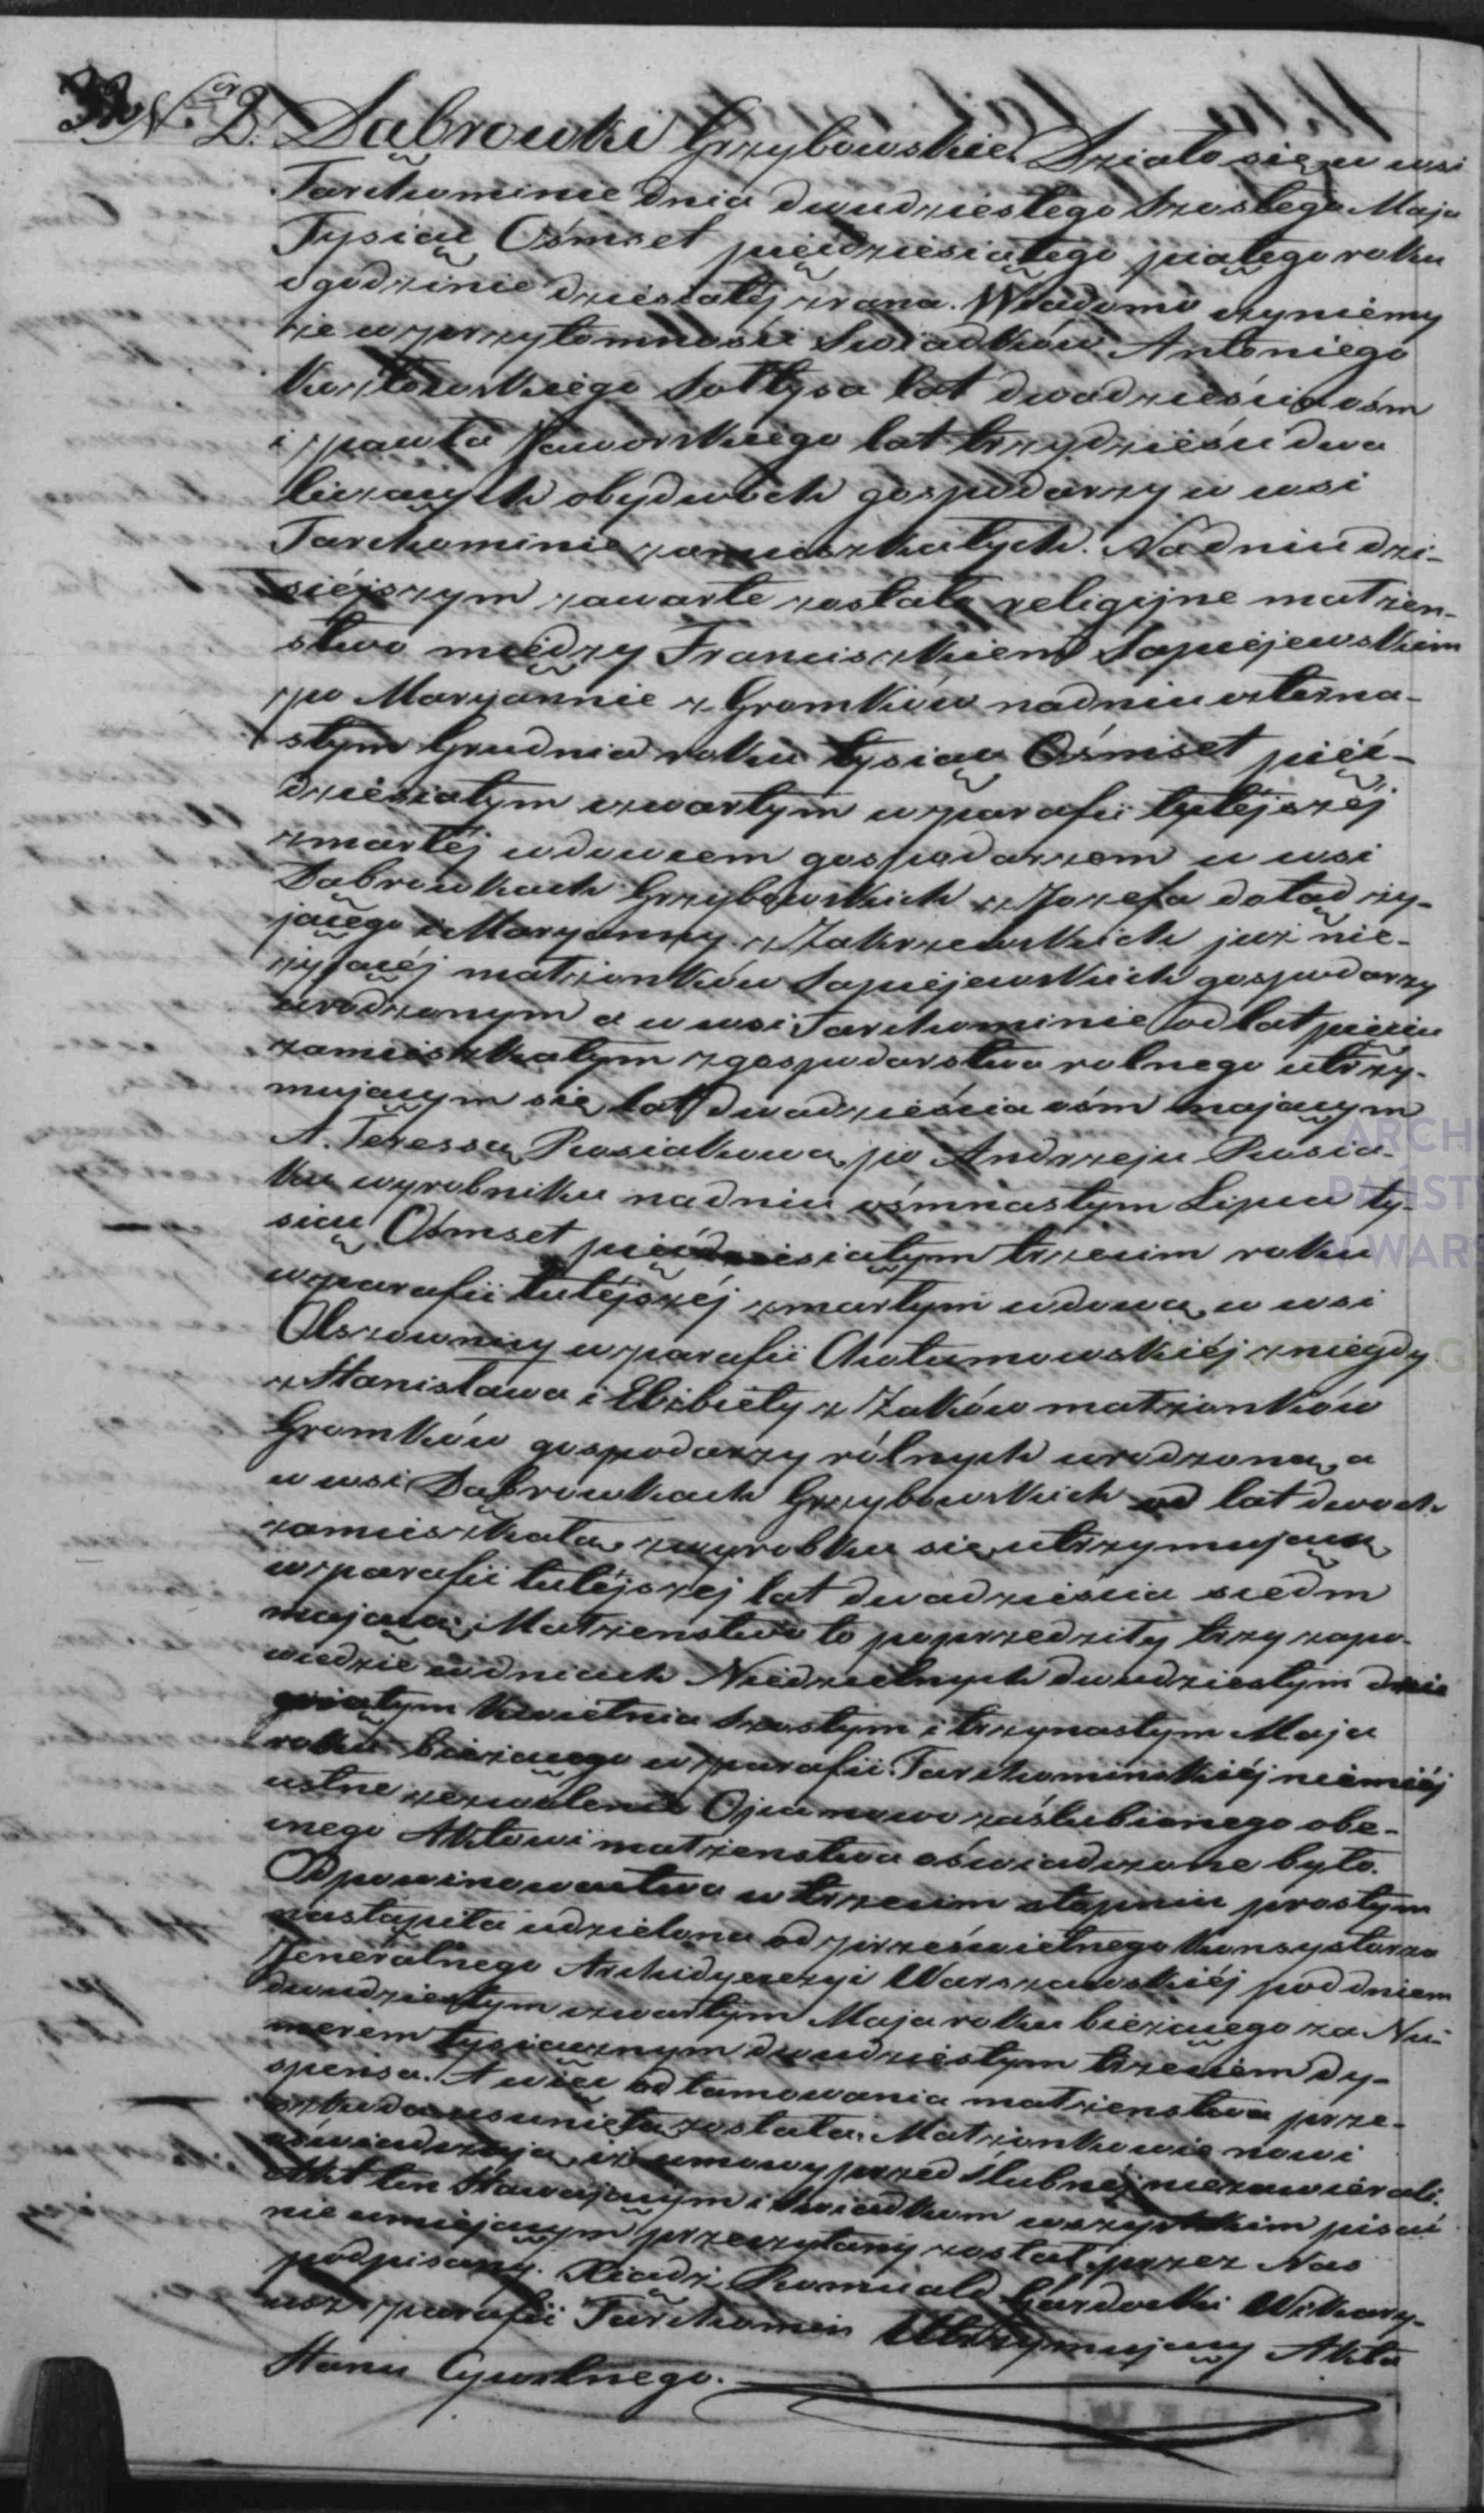 Nor 2. Dąbrowki Grzybowskie. Działo się w wsi
Tarchominie dnia dwudziestego szostego Maja
Tysiąc Ośmset pięćdziesiątego piątego roku
o godzinie dziesiątéj zrana. Wiadomo czyniemy
że w przytomności Swiadków Antoniego
Kozłowskiego Sołtysa lat dwadzieścia ośm
i Pawła Jaworskiego lat trzydzieści dwa
liczących obydwóch gospodarzy w wsi
Tarchominie zamieszkałych. Na dniu dzi-
siéjszym zawarte zostało religijne małżen-
stwo między Franciszkiem Sapiéjewskim
po Maryannie z Gromków na dniu czterna-
stym Grudnia roku tysiąc Ośmset pięć-
dziesiątym czwartym w parafii tutéjszéj
zmarłéj wdowcem gospodarzem w wsi
Dąbrowkach Grzybowskich z Jozefa dotąd ży-
jącego i Maryanny z Zakrzewskich już nie-
żyjącéj małżonków Sapiéjewskich gospodarzy
urodzonym a w wsi Tarchominie od lat pięciu
zamieszkałym z gospodarstwa rolnego utrzy-
mującym się lat dwadzieścia ośm mającym
A. Teressą Rosiakową po Andrzeju Rosia-
ku wyrobniku na dniu ośmnastym Lipca ty-
siąc Ośmset pięćdziesiątym trzecim roku
w parafii tutéjszéj zmartym wdową, w wsi
Olszownicy w parafii Chotumowskiéj z niegdy
z Stanisława i Elżbiety z Żaków małżonków
Gromków gospodarzy rólnych urodzoną, a
w wsi Dąbrowkach Grzybowskich od lat dwoch
zamieszkałą, z wyrobku się utrzymującą
w parafii tutéjszej lat dwadzieścia siedm
mającą. Małżenstwo to poprzedziły trzy zapo-
wiedzie w dniach Niedzielnych dwudziestym dzie
wiątym Kwietnia szostym i trzynastym Maja
roku bieżącego w parafii Tarchominskiéj niemniéj
ustne zezwolenie Ojca nowo zaślubionego obe-
cnego Aktowi małżenstwa oświadczone było.
Od powinowactwa w trzecim stopniu prostym
nastąpiła udzielona od prześwietnego Konsystorza
Jeneralnego Archidyecezyi Warszawskiéj pod dniem
dwudziestym czwartym Maja roku bieżącego za Nu-
merem tysiącznym dwudziestym trzeciem dy-
spensa. A więc od tamowania małżenstwa prze-
szkoda usunięta została. Małżonkowie nowi
oświadczają, iż umowy przed Slubnéj niezawiérali.
Akt ten Stawającym i Swiadkom wszystkim pisać
nie umiejącym przeczytany został, przez Nas
podpisany. Xiądz Romuald Gárdocki Wikary-
usz parafii Tarchomin Utrzymujący Akta
Stanu Cywilnego.